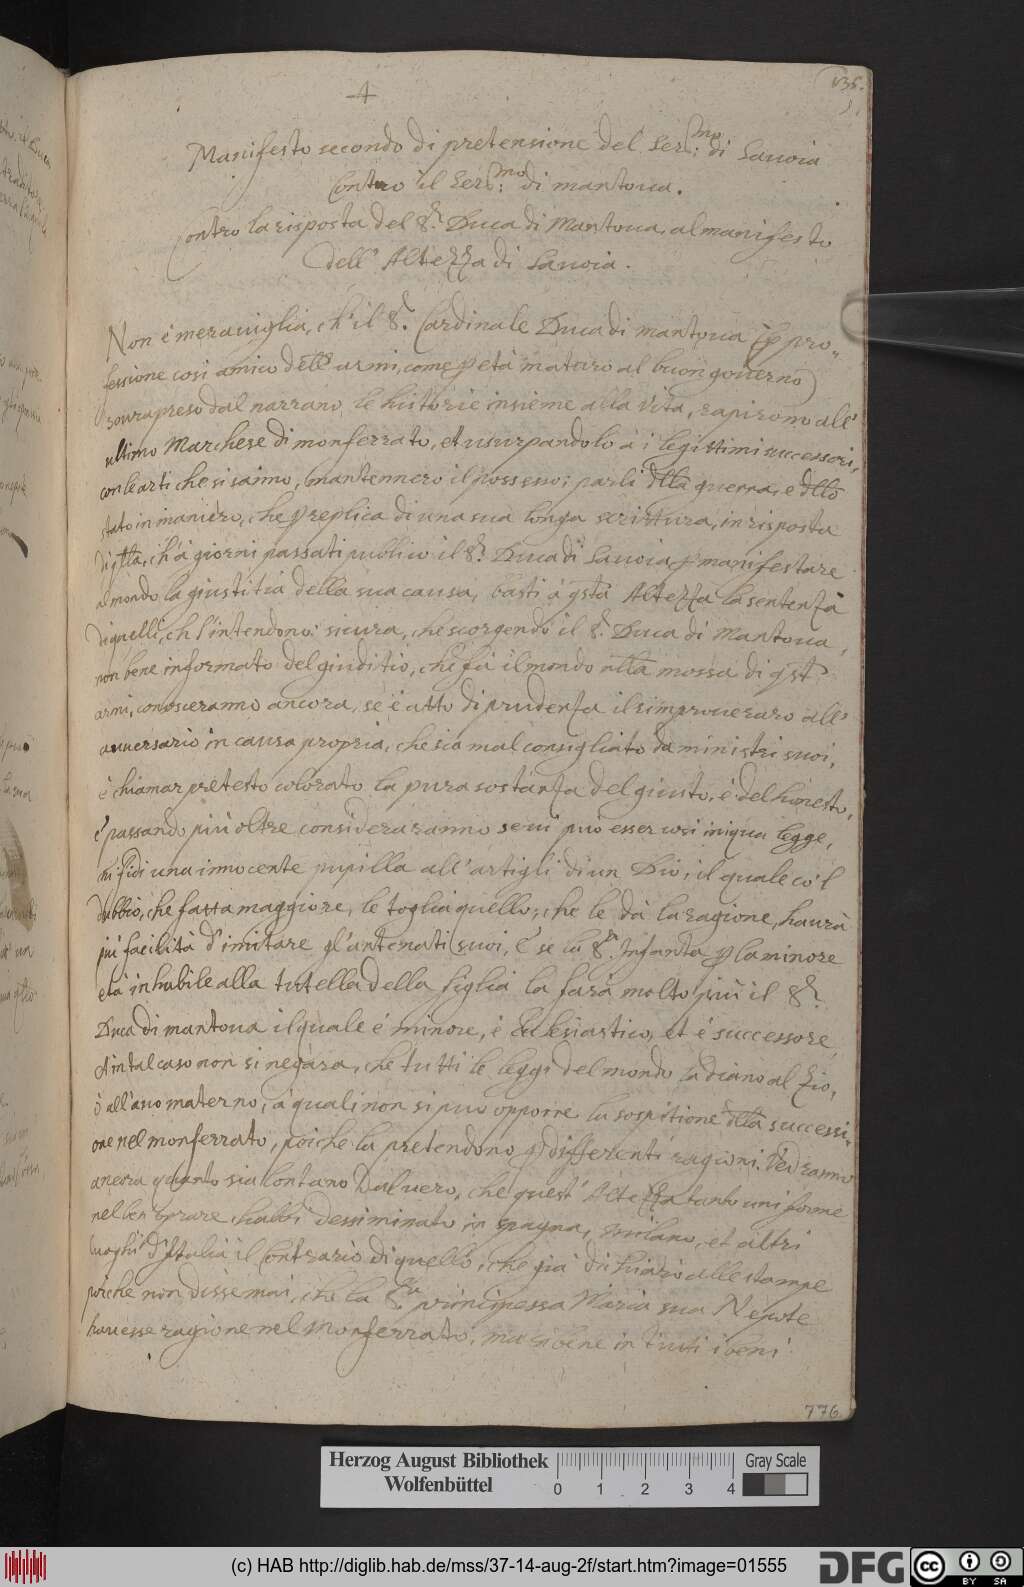 135.
1.
Manifesto secondo di pretensione del Ser:mo di Sauoia
Contro il Ser:mo di mantoua.
Contro la risposta del S.r Duca di Mantoua, al manifesto
dell' Altezza di Sauoia.
Non è merauiglia, ch' il S.r Cardinale Duca di mantoua (p pro-
fessione cosi amico dell' armi, come p età maturo al buon gouerno)
sourapreso dal narrano le historie insieme alla Vita, rapirono all'
ultimo Marchese di monferrato, et usurpandolo à i legittimi successori,
con le arti che si sanno, mantennero il possesso; parli dlla guerra, e dllo
stato in maniera, che p replica di una sua longa scrittura, in risposta
di qlla, ch' à giorni passati publicò il S.r Duca di Sauoia p manifestare
al mondo la giustitia della sua causa, basti à qsta Altezza la sentenza
di quelli, ch l'intendono: sicura, che scorgendo il S.r Duca di Mantoua,
non bene informato del giuditio, che fa il mondo nlla mossa di qst'
armi, conosceranno ancora, se è atto di prudenza il rimprouerare all'
auuersario in causa propria, che sia mal consigliato da ministri suoi,
è chiamar pretesto colorato la pura sostanza del giusto, e del honesto,
e passando più oltre consideraranno se ui può esser cosi iniqua legge,
che fidi una innocente pupilla all' artigli di un Zio, il quale co'l
dubbio, che fatta maggiore, le toglia quello, che le dà la ragione, haurà
più facilità d'imitare gl'antenati suoi, E se la S.ra Infanta p la minore
età inhabile alla tutella della figlia la farà molto più il S.r
Duca di mantoua il quale é minore, é Ecclesiastico, et é successore,
et in tal caso non si negarà, che tutti le leggi del mondo la diano al Zio,
ò all'auo materno, a quali non si può opporre la sospitione dlla successi-
one nel monferrato, poiche la pretendono p differenti ragioni. Vedranno
ancora quanto sia lontano dal uero, che quest' Altezza tanto uniforme
nel ben oprare habbi desseminato in spagna, milano, et altri
luoghi d'Italia il contrario di quello, che già dichiarò alle stampe
poiche non disse mai, che la S.ra principessa Maria sua Nepote
hauesse ragione nel Monferrato, ma si bene in tutti i beni
776
Herzog August Bibliothek
Wolfenbüttel
0 1 2 3 4
Gray Scale
(c) HAB http://diglib.hab.de/mss/37-14-aug-2f/start.htm?image=01555
DFG
cc BY SA